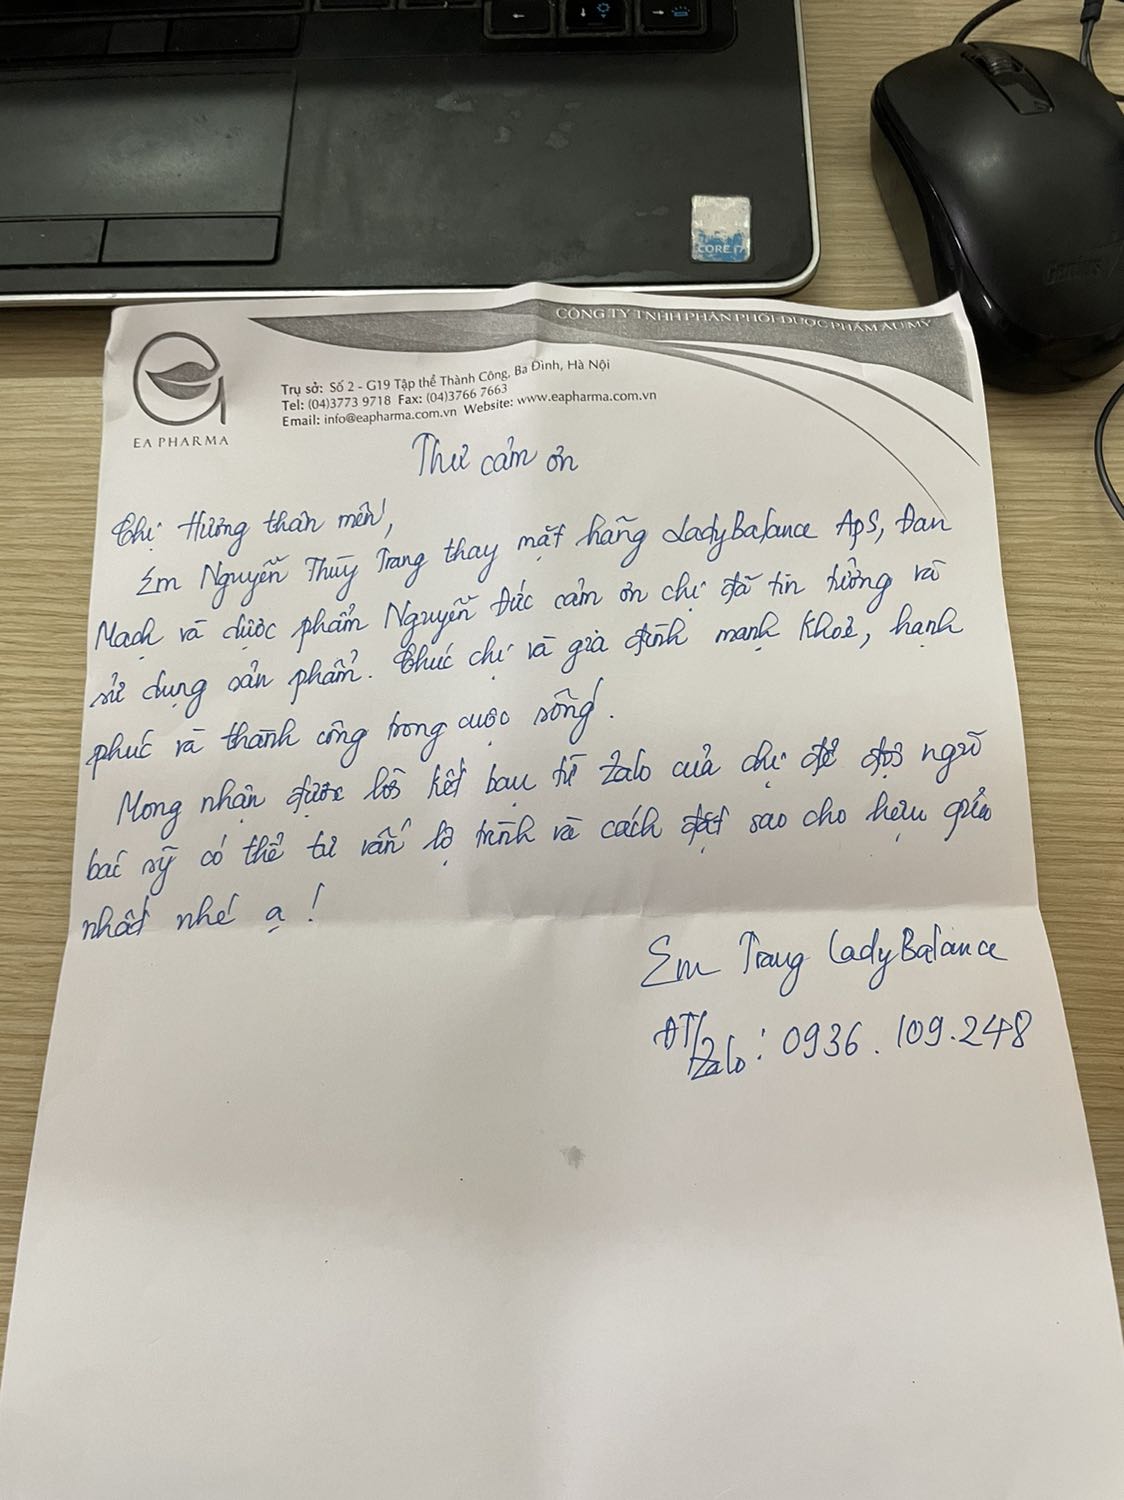 CORE i7
Genius
CÔNG TY TNHH PHÂN PHỐI DƯỢC PHẨM ÂU MỸ
EA PHARMA
Trụ sở: Số 2 - G19 Tập thể Thành Công, Ba Đình, Hà Nội
Tel: (04)3773 9718 Fax: (04)3766 7663
Email: info@eapharma.com.vn Website: www.eapharma.com.vn
Thư cảm ơn
Chị Hương thân mến,
Em Nguyễn Thùy Trang thay mặt hãng LadyBalance ApS, Đan
Mạch và dược phẩm Nguyễn Đức cảm ơn chị đã tin tưởng và
sử dụng sản phẩm. Chúc chị và gia đình mạnh khoẻ, hạnh
phúc và thành công trong cuộc sống.
Mong nhận được lời kết bạn từ Zalo của chị để đội ngũ
bác sỹ có thể tư vấn lộ trình và cách đặt sao cho hiệu quả
nhất nhé ạ!
Em Trang LadyBalance
ĐT/Zalo: 0936.109.248